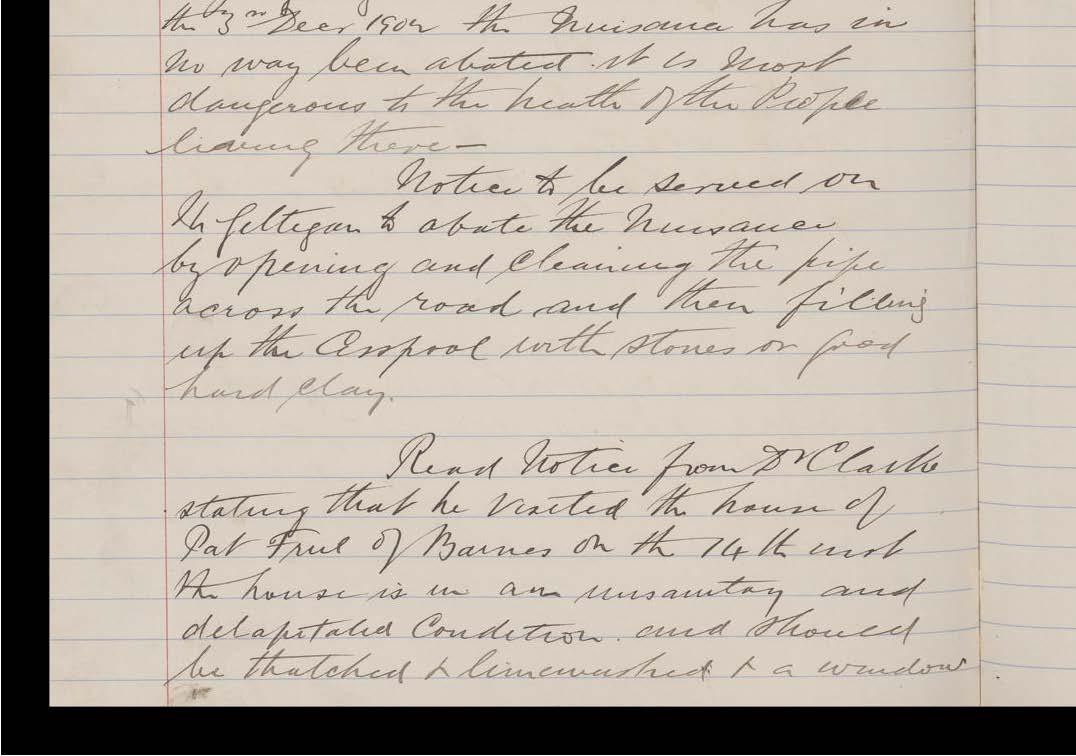 the 3rd Decr 1902 the Nuisance has in
no way been abated. it is most
dangerous to the health of the People
liveing there—
Notice to be served on
Mr Gettegan to abate the Nuisance
by opening and cleaning the pipe
across the road and then filling
up the Cesspool with stones or good
hard clay.
Read Notice from Dr Clarke
stating that he visited the house of
Pat Friel of Barnes on the 14th inst
the house is in an unsanitary and
delapitated Condition. and should
be thatched & limewashed & a window